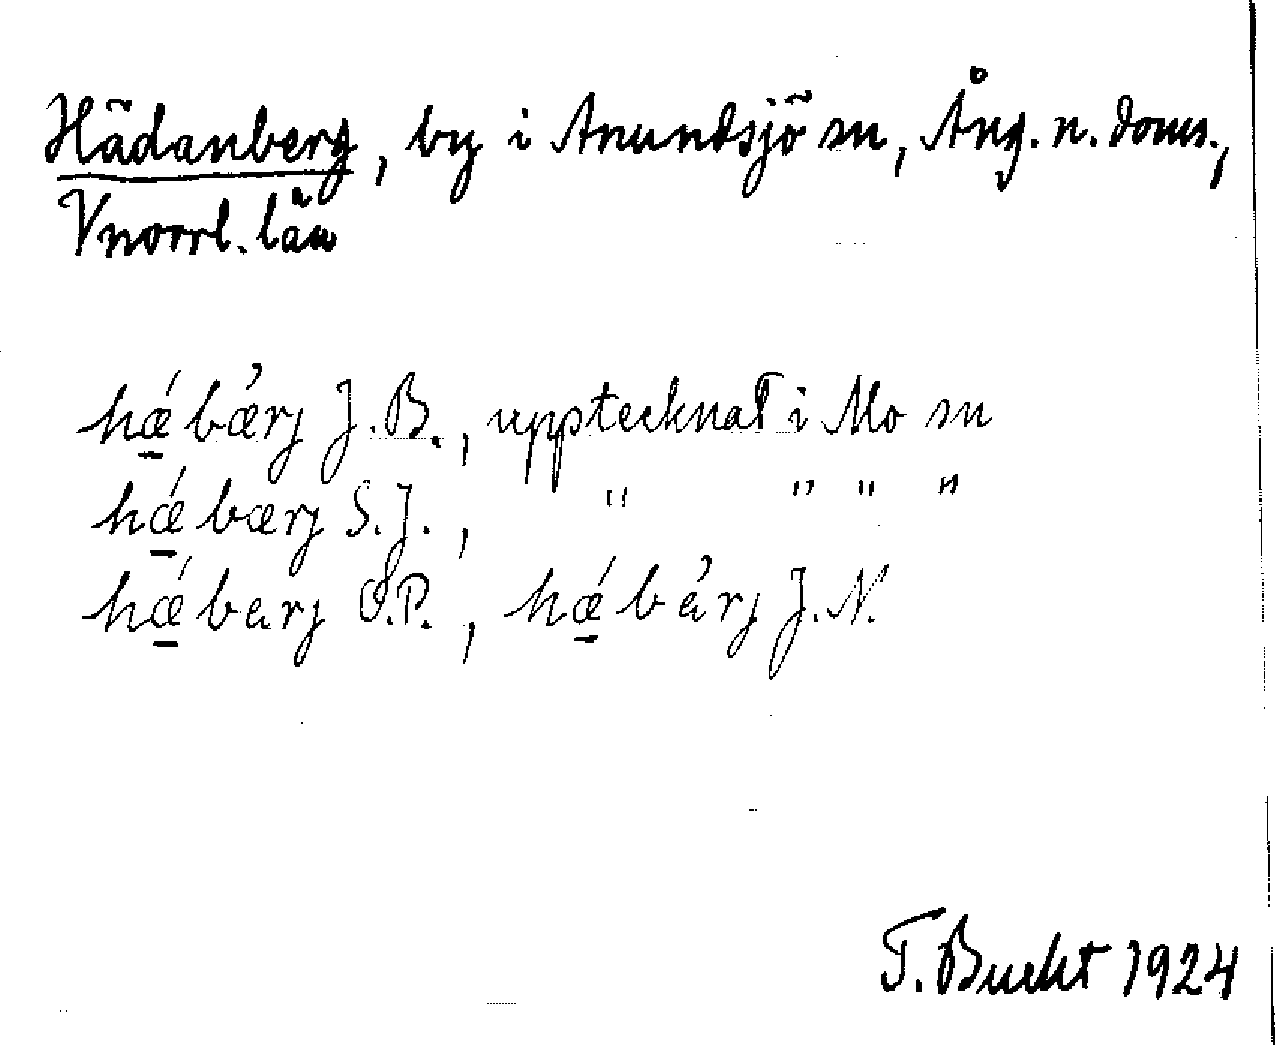 Hädanberg, by i Anundsjö sn, Ång. n. doms.,
Vnorrl. län
hǽ̠bærj J.B., upptecknat i Mo sn
hǽ̠bærj S.J., " " " "
hǽ̠barj O.P., hǽ̠bàrj J.N.
T. Bucht 1924